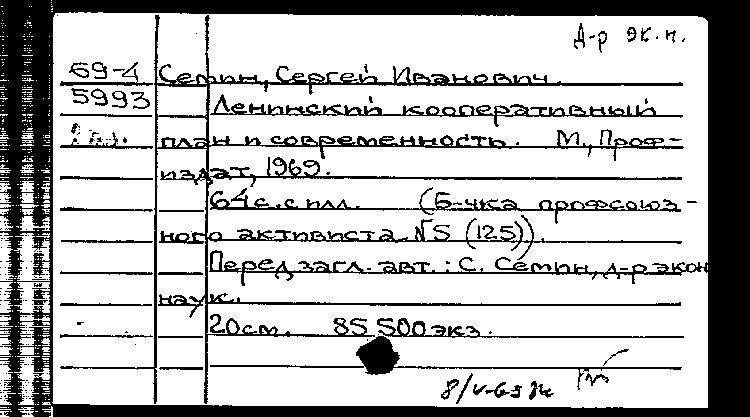 Д-р эк.н.
69-4 Семин, Сергей Иванович.
5993 Ленинский кооперативный
план и современность. М., Проф-
издат, 1969.
64 с. с илл. (Б-чка профсоюз-
ного активиста. №5 (125)).
Перед загл. авт.: С. Семин, д-р экон
наук.
20см. 85 500 экз.
8/V-69